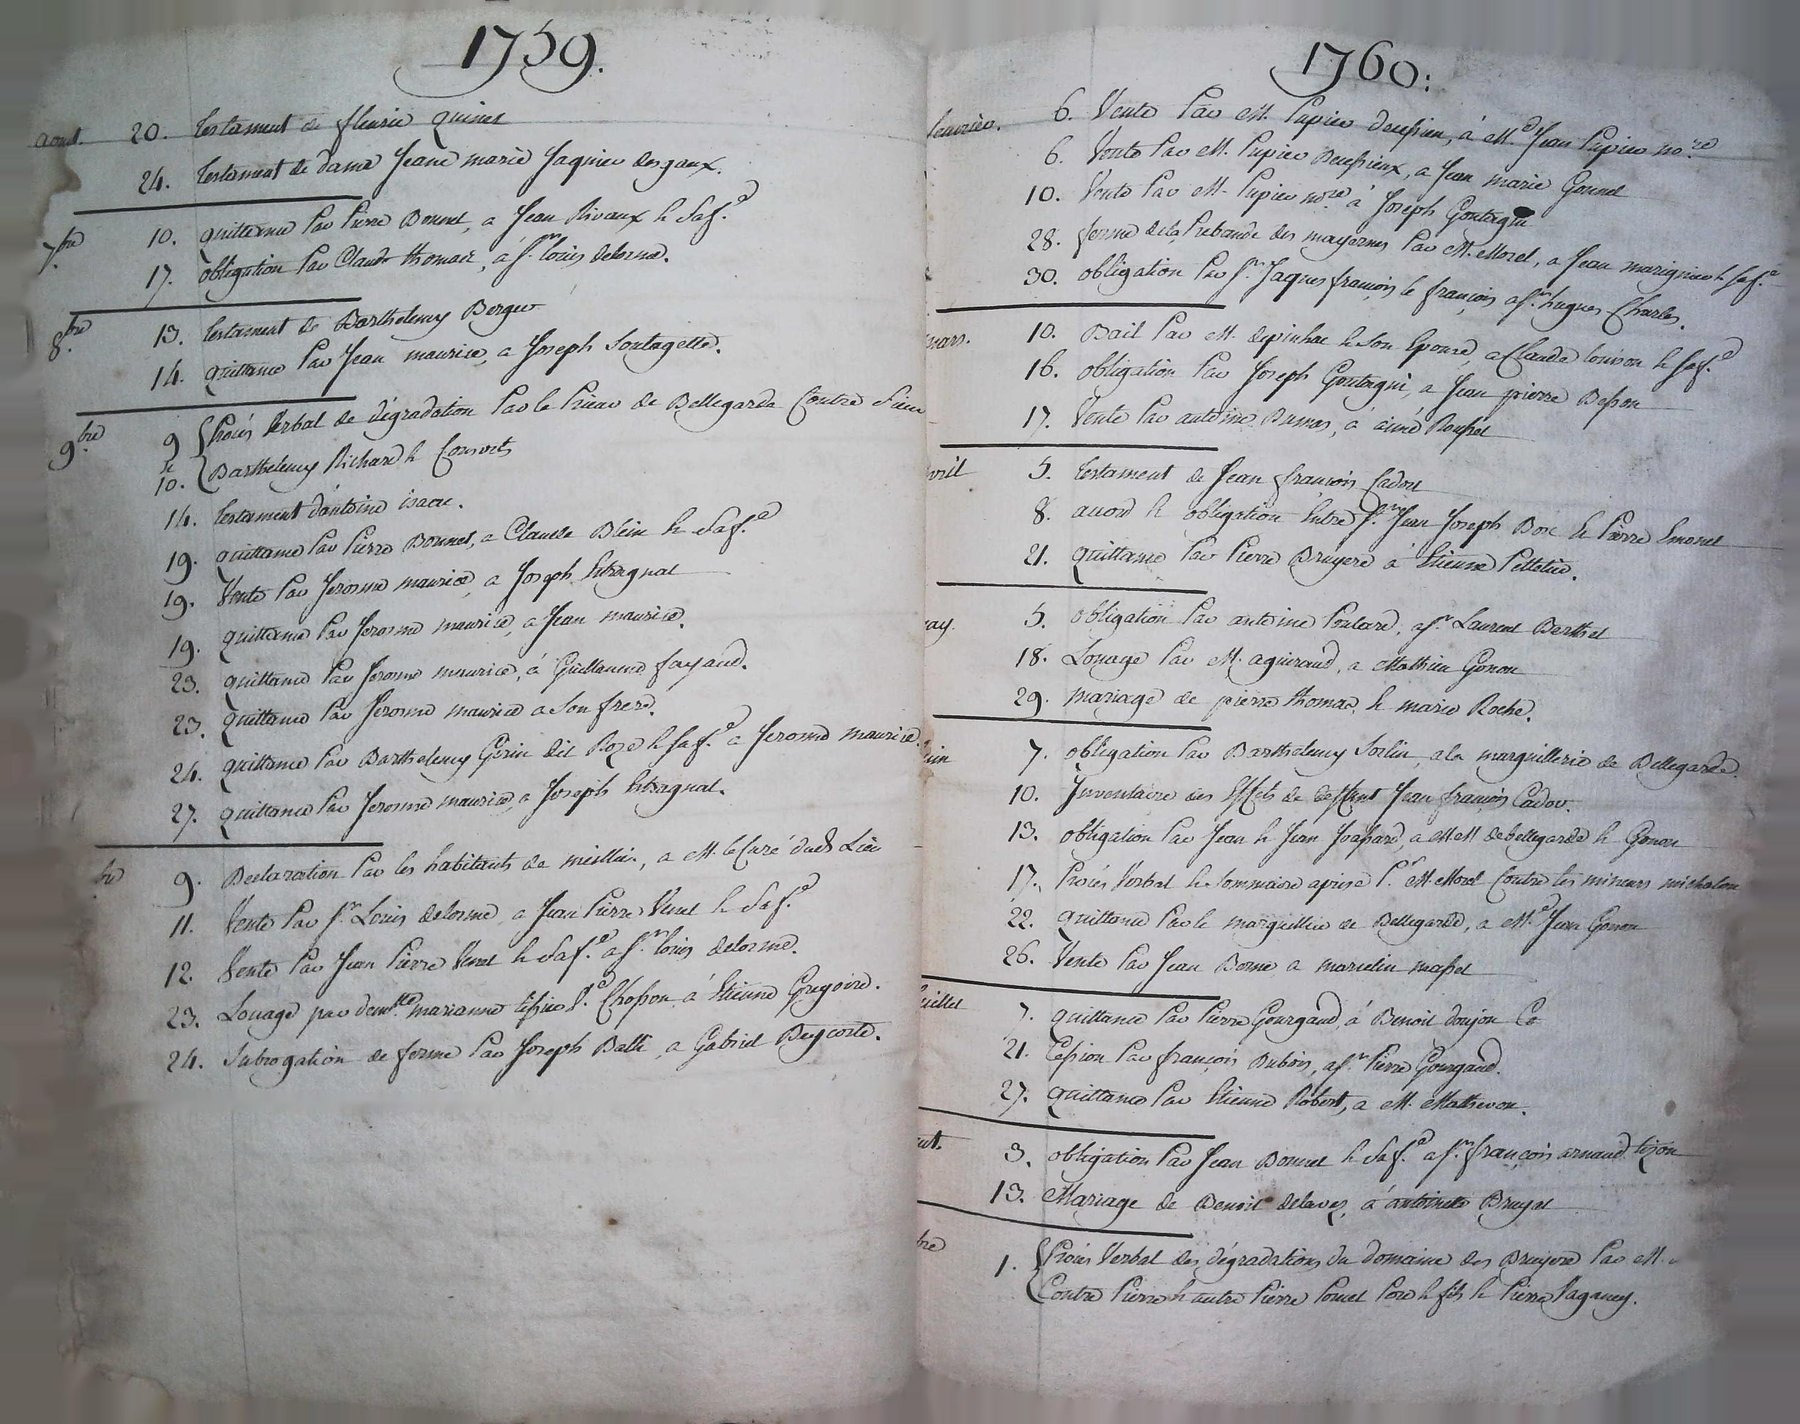 1759.
aout. 20. testament de fleurie quinet
24. testament de dame Jeane marie Jaquier desgaux.
7.bre 10. quittance Par Pierre Bonnet, a Jean Rivaux & Saf.e
17. obligation Par Claude thomas, a s.r louis delorme.
8.bre 13. testament de Barthelemy Berger
14. quittance Par Jean maurice, a Joseph
9.bre 9 Procés Verbal de dégradation Par le Prieur de Bellegarde Contre Sieur
& 10. Barthelemy Richard & Consorts
14. testament d'antoine isaac.
19. quittance Par Pierre Bonnet, a Claude Blein & Saf.e
19. Vente Par Jerosme maurice, a Joseph
19. quittance Par Jerosme maurice, a Jean maurice.
23. quittance Par Jerosme maurice, à Guillaume fayaud.
23. quittance Par Jerosme maurice a Son frere.
24. quittance Par Barthelemy Gerin dit Roze & Saf.e a Jerosme maurice.
27. quittance Par Jerosme maurice, a Joseph
bre 9. Declaration Par les habitants de, a M. le Curé dud Lieu
11. Vente Par s.r Louis delorme, a Jean Pierre Venet & Saf.e
12. Vente Par Jean Pierre Venet & Saf.e a s.r louis delorme.
23. Louage par dem.lle marianne V.e Chosson à Etienne Gregoire.
24. Subrogation de ferme Par Joseph Balli, a Gabriel
1760:
fevrier. 6. Vente Par M. Pupier, à M.e Jean Pupier no.re
6. Vente Par M. Pupier, a Jean marie Gounet
10. Vente Par M. Pupier no.re à Joseph Goutagni
28. ferme de la Prebande des Par M. Morel, a Jean marignier & Saf.e
30. obligation Par s.r Jaques françois le françois a s.r hugues Charles.
mars. 10. Bail Par M. depinhac & Son Epouse, a Claude louison & Saf.e
16. obligation Par Joseph Goutagni, a Jean pierre Besson
17. Vente Par antoine Dumas, à aimé Rousset
avril 5. testament de Jean françois Cadou
8. accord & obligation Entre s.r Jean Joseph Bose & Pierre
21. quittance Par Pierre Bruyere à Etienne Pelletier.
may. 5. obligation Par antoine, a s.r Laurent Barthel
18. Louage Par M. aguiraud, a Mathieu Gonon
29. mariage de pierre thomas, & marie Roche.
juin 7. obligation Par Barthelemy Sorlin, a la marguillerie de Bellegarde.
10. Inventaire des Effets de deffunt Jean françois Cadou.
13. obligation Par Jean & Jean, a MM de bellegarde & Gonon
17. Procés Verbal & Sommaire aprise P.r M Morel Contre les mineurs michalon
22. quittance Par le marguillier de Bellegarde, a M.e Jean Gonon
26. Vente Par Jean Bonne a marcelin masset
juillet 7. quittance Par Pierre Gourgaud, à Benoit donjon
21. Cession Par françois Dubois, a s.r Pierre Gourgaud.
27. quittance Par Etienne Robert, a M. Mathevon.
aout. 3. obligation Par Jean Bonnet & Saf.e a s.r françois arnaud tizon
13. Mariage de Benoit, a antoinete Bruyat
bre 1. Procés Verbal des dégradations du domaine des Bruyere Par M.
Contre Pierre & autre Pierre Poncet Pere & fils & Pierre Paganey.